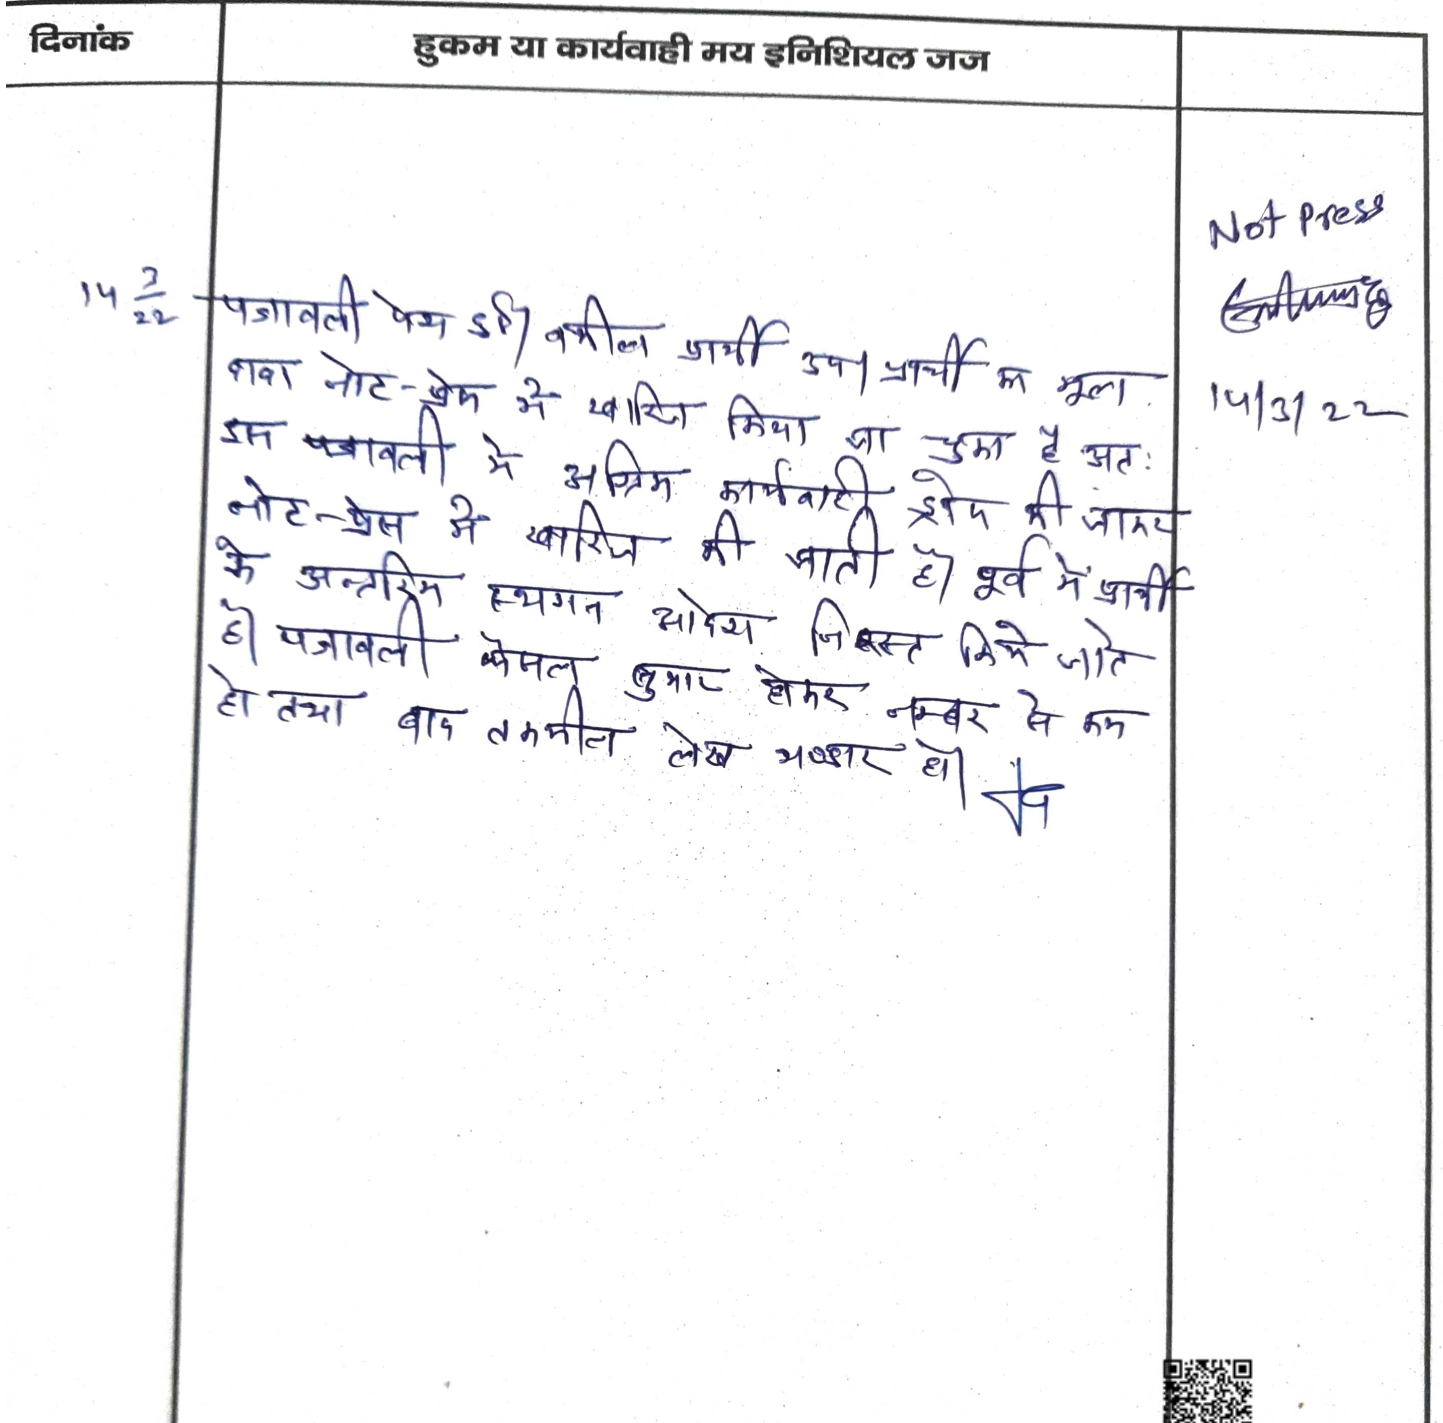 दिनांक
हुकम या कार्यवाही मय इनिशियल जज
Not Press
14/3/22
14 3/22
पत्रावली पेश हुई। वकील प्रार्थी उप। प्रार्थी का मूल
वाद नोट-प्रेस में खारिज किया जा चुका है अतः
इस पत्रावली में अग्रिम कार्यवाही ड्रोप की जाकर
नोट-प्रेस में खारिज की जाती है। पूर्व में प्रार्थी
के अन्तरिम स्थगन आदेश निरस्त किये जाते
है। पत्रावली फैसल शुमार होकर नम्बर से कम
हो तथा बाद तकमील लेख भण्डार हो।